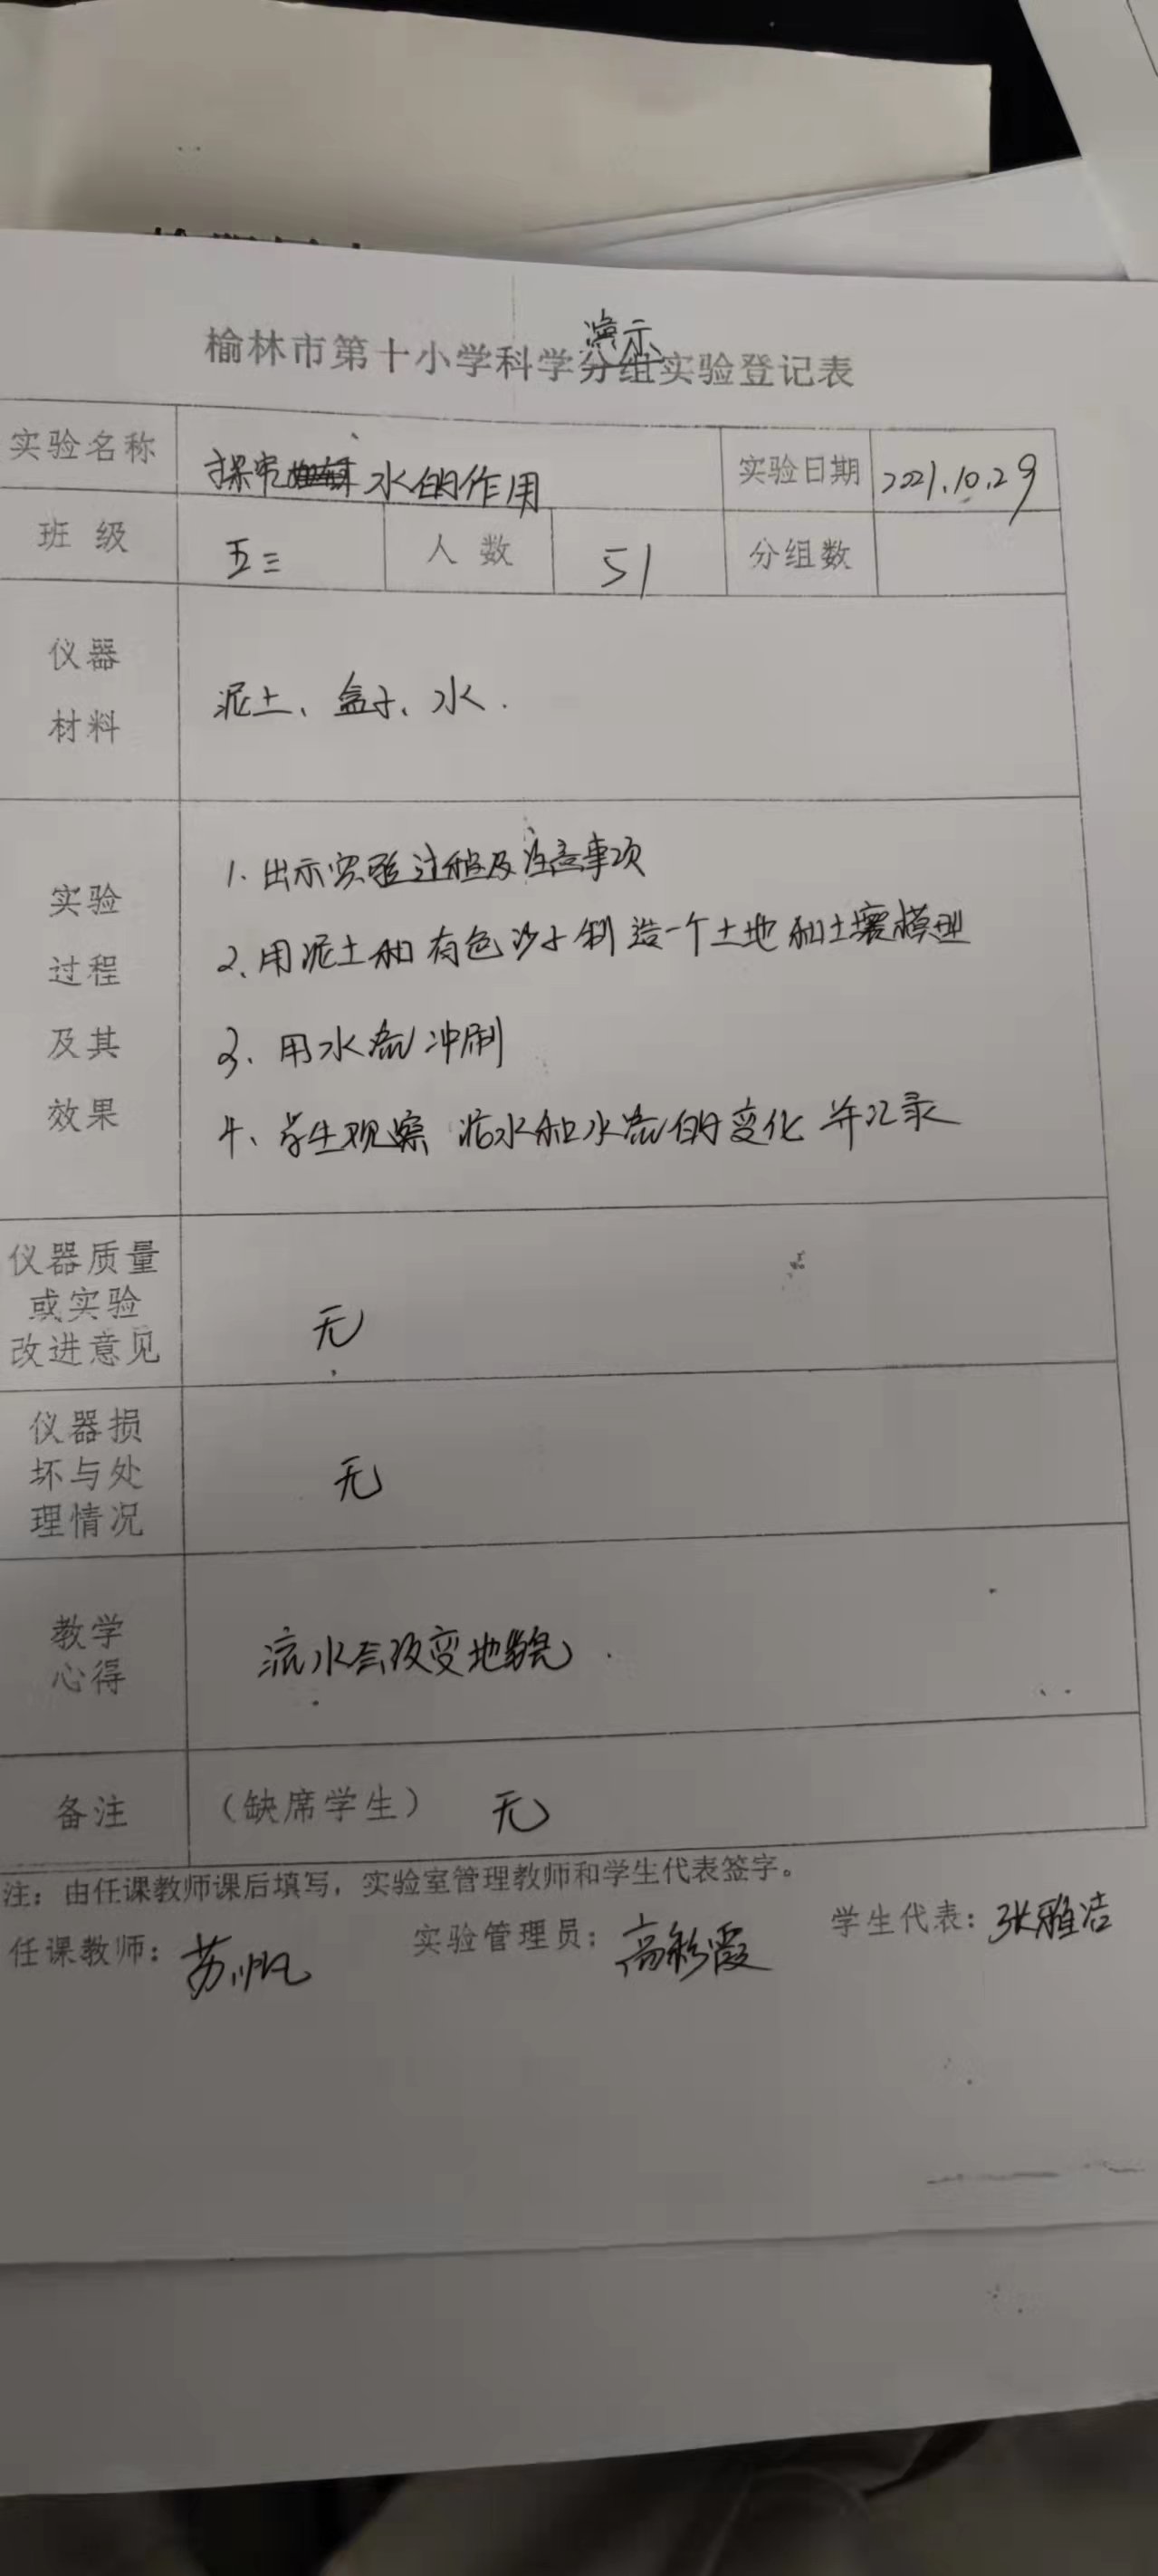 演示
榆林市第十小学科学分组实验登记表
实验名称 探究 水的作用 实验日期 2021.10.29
班 级 五三 人 数 51 分组数
仪器
材料
泥土、盒子、水.
实验
过程
及其
效果
1. 出示实验过程及注意事项
2、用泥土和有色沙子制造一个土地和土壤模型
3、用水流冲刷
4、学生观察 水和水流的变化 并记录
仪器质量
或实验
改进意见
无
仪器损
坏与处
理情况
无
教学
心得
流水会改变地貌.
备注 （缺席学生） 无
注：由任课教师课后填写，实验室管理教师和学生代表签字。
任课教师：苏帆 实验管理员：高彩霞 学生代表：张雅洁